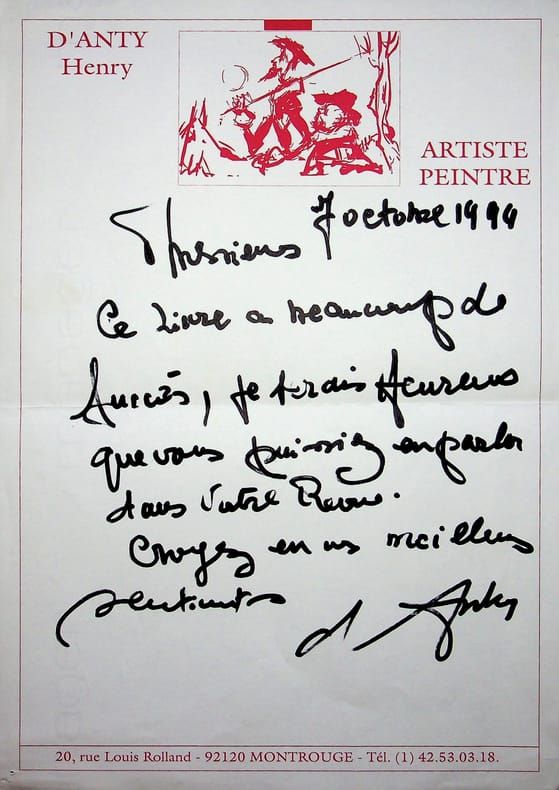 D'ANTY
Henry
ARTISTE
PEINTRE
7 octobre 1994
Messieurs
Ce livre a beaucoup de
succès, je serais heureux
que vous puissiez en parler
dans votre Revue.
Croyez en mes meilleurs
sentiments
d'Anty
20, rue Louis Rolland - 92120 MONTROUGE - Tél. (1) 42.53.03.18.